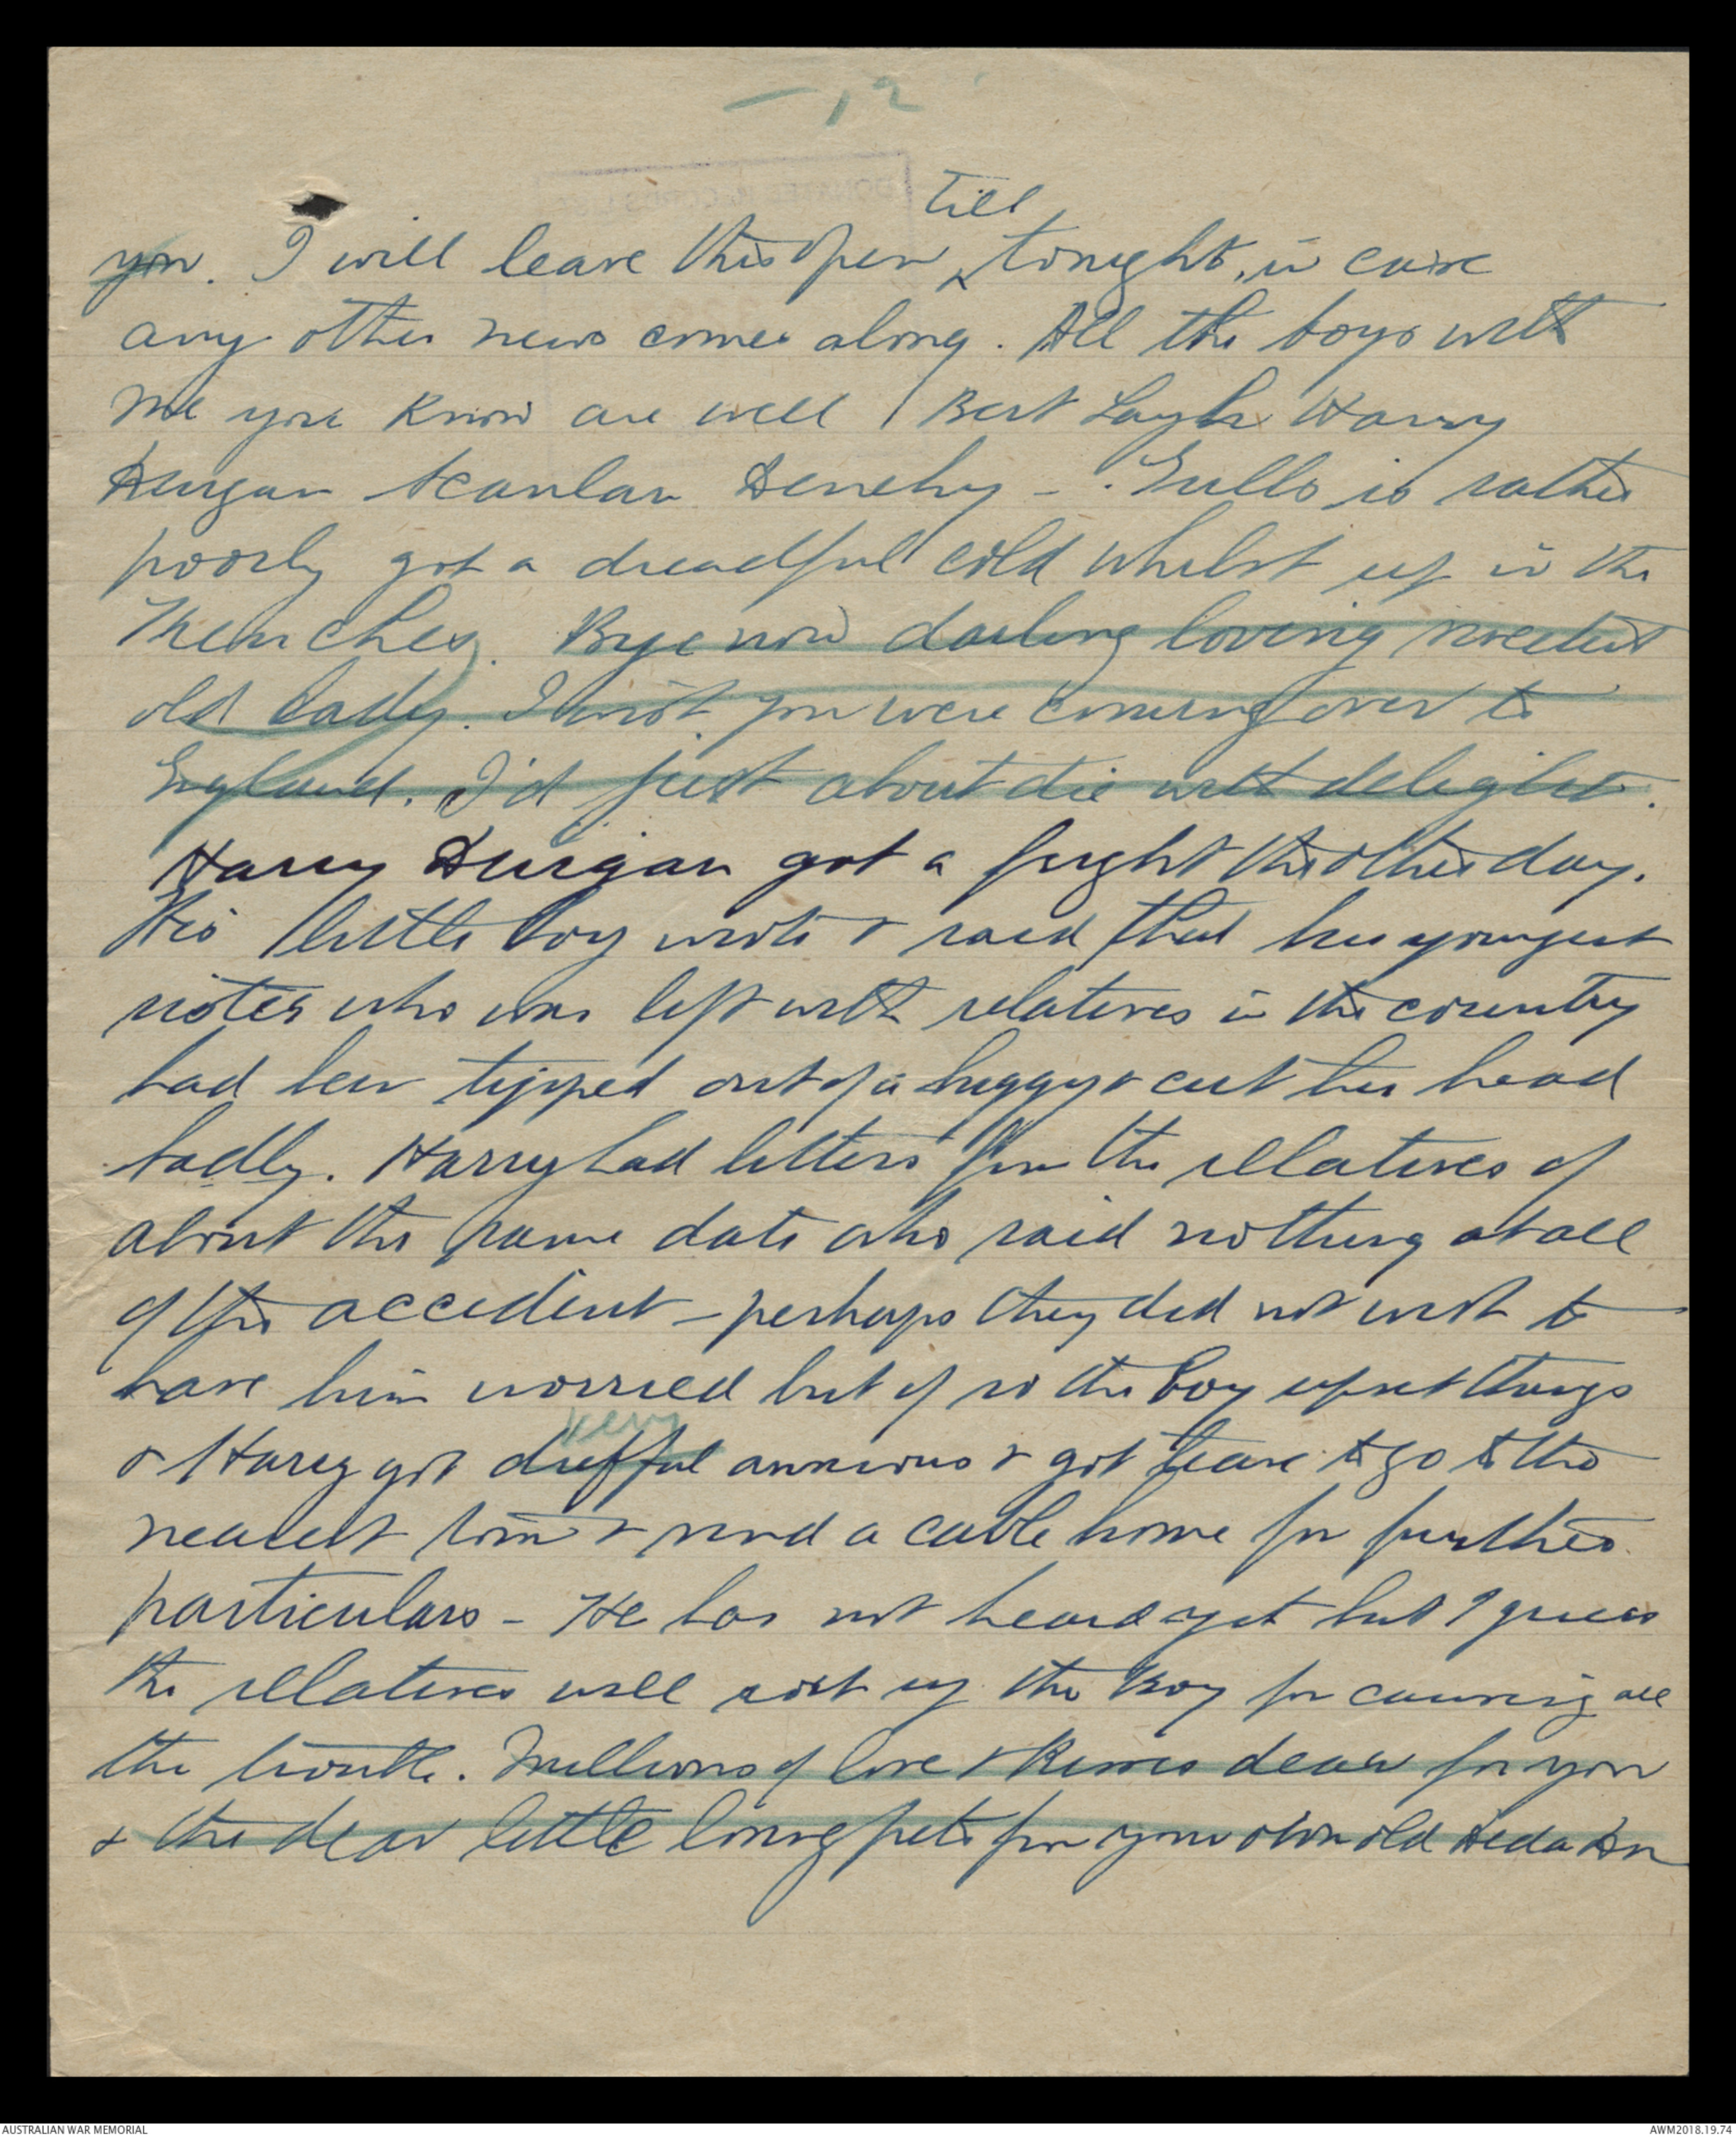 - 12
till
you. I will leave this open ^ tonight, in case
any other news comes along. All the boys with
me you know are well / Bert Layh Harry
Durgan Scanlan Denehy - Tullo is rather
poorly got a dreadful cold whilst up in the
Trenches. Bye now darling loving sweetest
old lady. I wish you were coming over to
England. I'd just about die with delight.
Harry Durigan got a fright the other day.
His little boy wrote & said that his youngest
sister who was left with relatives in the country
had been tipped out of a buggy & cut her head
badly. Harry had letters from the relatives of
about the same date who said nothing at all
of the accident - perhaps they did not wish to
have him worried but if so the boy upset things
very
& Harry got drefful anxious & got leave to go to the
nearest town & send a cable home for further
particulars - He has not heard yet but I guess
the relatives will roist up the Boy for causing all
the trouble. Millions of love & kisses dear for you
& the dear little loving pets from your own old Dida Don
AUSTRALIAN WAR MEMORIAL
AWM2018.19.74